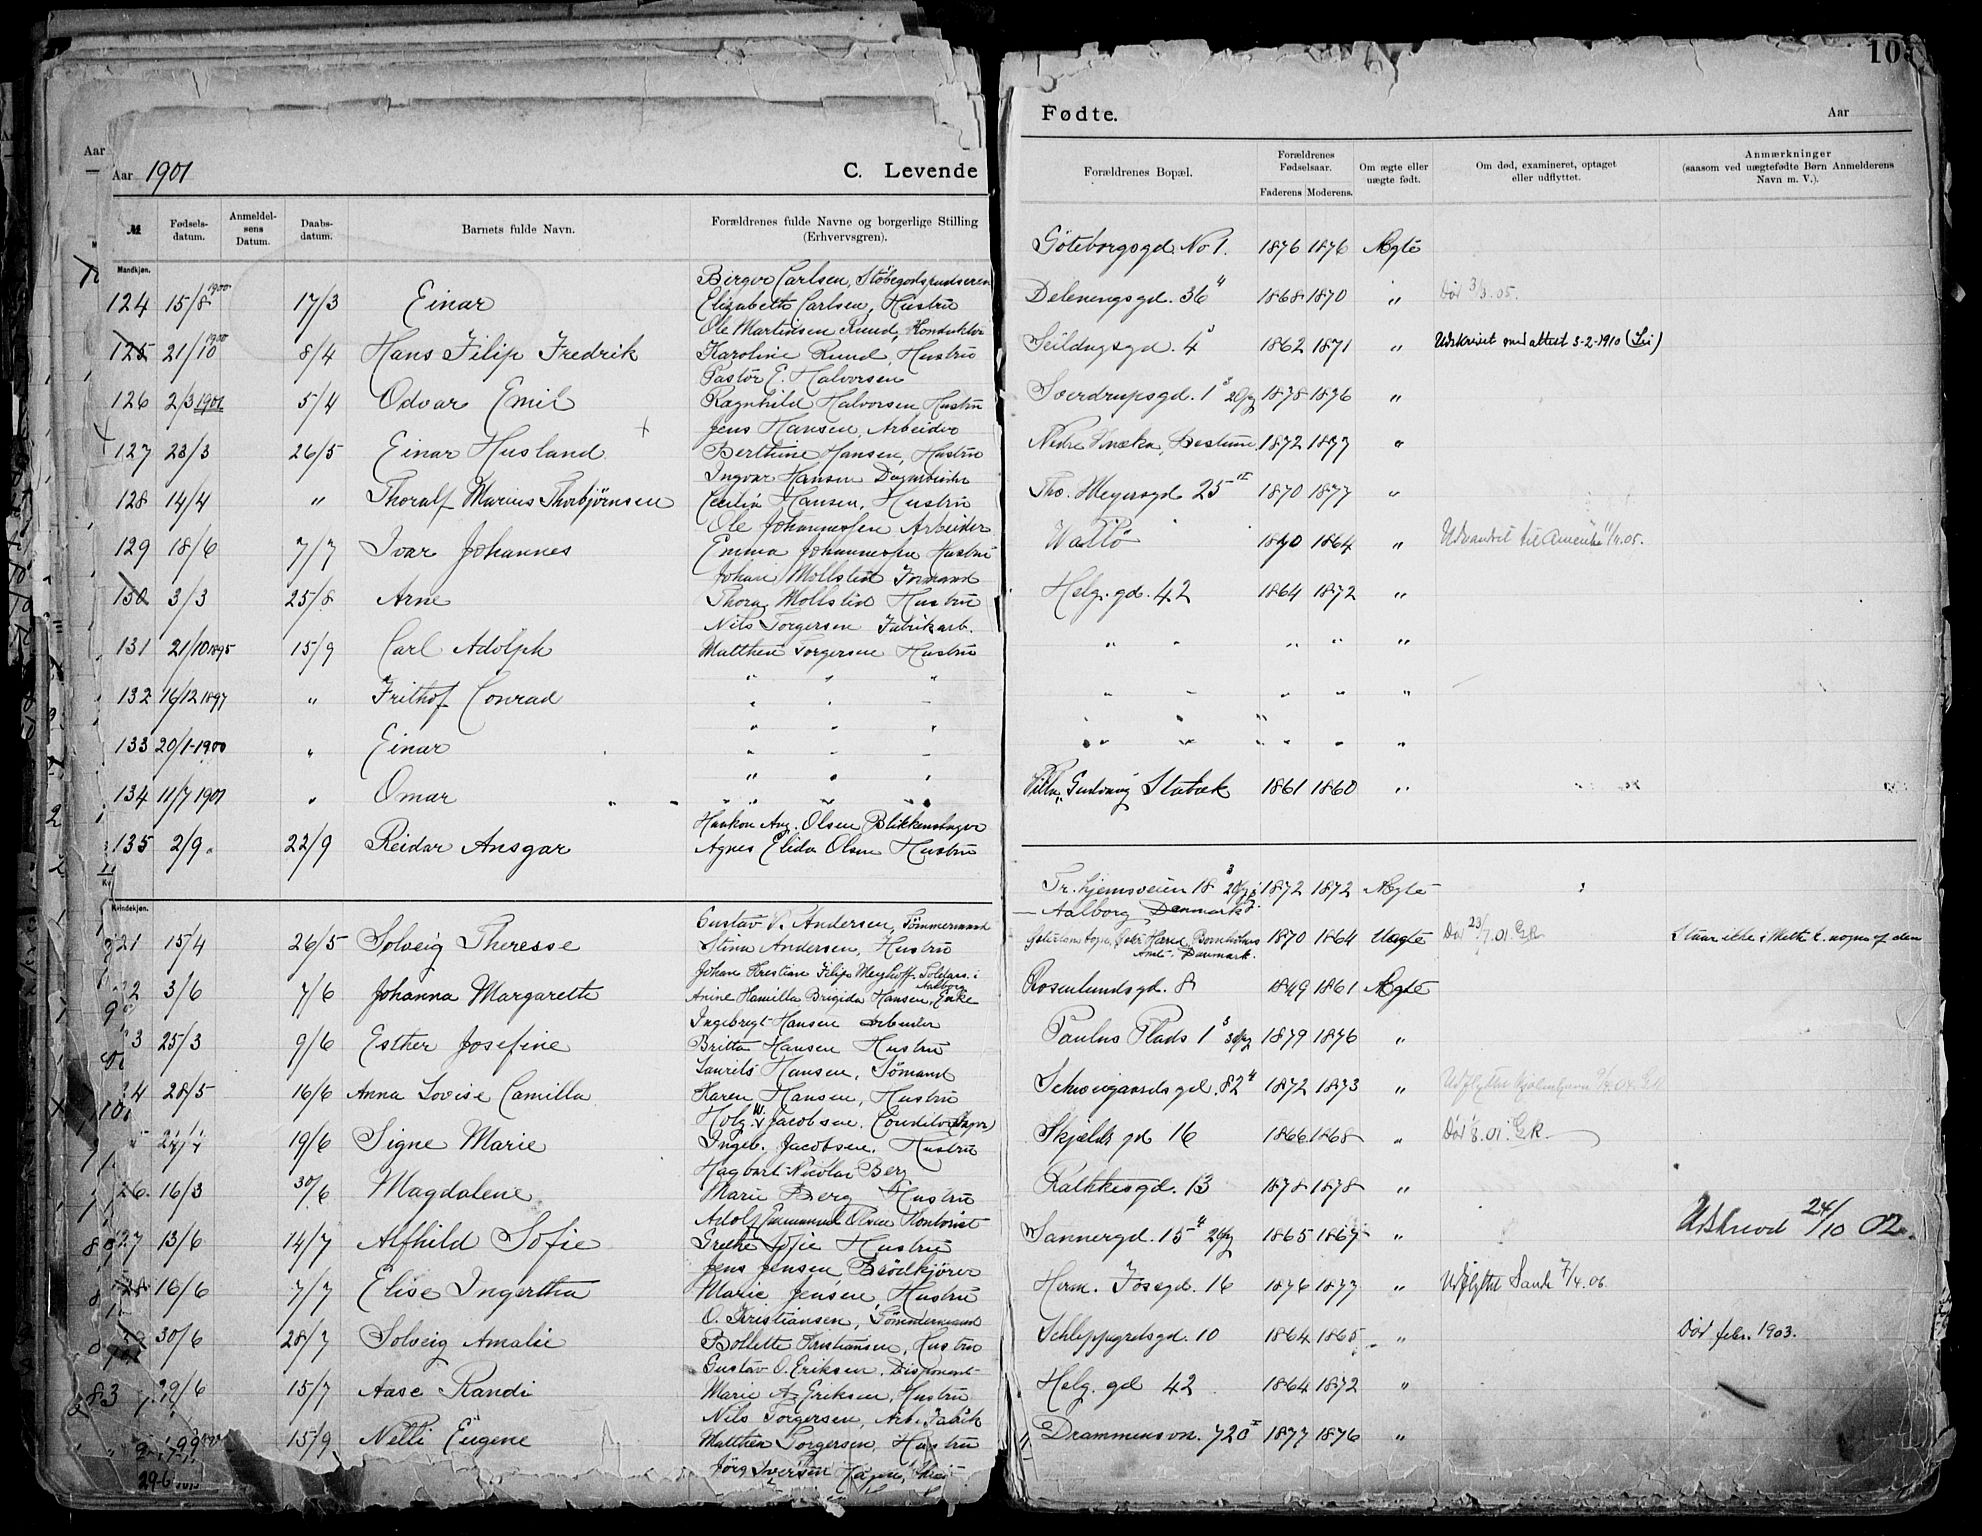 Aar
Aar 1901
C. Levende
№
Fødsels-
datum.
Anmeldel-
sens
Datum.
Daabs-
datum.
Barnets fulde Navn.
Forældrenes fulde Navne og borgerlige Stilling
(Erhvervsgren).
Mandkjøn.
Birger Carlsen,
124 15/8 1900 17/3 Einar Elizabeth Carlsen, Hustru
Ole Martinsen Ruud, Konduktør
125 21/10 1900 8/4 Hans Filip Fredrik Karoline Ruud, Hustru
Pastor E. Halvorsen
126 2/3 1901 5/4 Odvar Emil Ragnhild Halvorsen Hustru
Jens Hansen, Arbeider
127 23/3 26/5 Einar Husland Berthine Hansen, Hustru
Ingvar Hansen Dagarbeider
128 14/4 " Thoralf Marius Thorbjörnsen Cecilia Hansen, Hustru
Ole Johannessen Arbeider
129 18/6 7/7 Ivar Johannes Emma Johannessen Hustru
Johan Mollstad Formand
130 3/3 25/8 Arne Thora Mollstad Hustru
Nils Torgersen Fabrikarb.
131 21/10 1895 15/9 Carl Adolph Matthea Torgersen Hustru
132 16/12 1897 " Frithof Conrad " " "
133 20/1-1900 " Einar " " "
134 11/7 1901 " Omar " " "
Haakon Aug. Olsen Blikkenslager
135 2/9 22/9 Reidar Ansgar Agnes Elida Olsen Hustru
Kvindekjøn.
Gustav V. Andersen, Tömmermand
21 15/4 26/5 Solveig Theresse Stina Andersen, Hustru
Johan Kristian Filip Meyhoff Toldass. i
Aalborg
22 3/6 7/6 Johanna Margareth Anine Hamilla Brigida Hansen, Enke
Ingebregt Hansen Arbeider
23 25/3 9/6 Esther Josefine Britta Hansen Hustru
Laurits Hansen, Sömand
24 28/5 16/6 Anna Lovise Camilla Karen Hansen, Hustru
Holg. W. Jacobsen, Conditor
19/6 Signe Marie Ingeb. Jacobsen, Hustru
Hagbart Nicolai Berg
26. 16/3 30/6 Magdalene Marie Berg Hustru
Adolf Emmanuel Olsen Kontorist
27 13/6 14/7 Alfhild Sofie Grethe Sofie Hustru
Jens Jensen, Brödkjörer
28 16/6 7/7 Elise Ingertha Marie Jensen, Hustru
O. Kristiansen, Tömmermand
30/6 28/7 Solveig Amalie Bollette Kristiansen, Hustru
Gustav O. Eriksen, Disponent
29/6 15/7 Aase Randi Marie A. Eriksen, Hustru
Nils Torgersen, Arb. Fabrik
15/9 Nelli Eugene Matthea Torgersen, Hustru
Fødte.
Aar
Forældrenes Bopæl.
Forældrenes
Fødselsaar.
Faderens Moderens.
Om ægte eller
uægte født.
Om død, examineret, optaget
eller udflyttet.
Anmærkninger
(saasom ved uægtefødte Børn Anmelderens
Navn m. V.).
Göteborgsgd. No 1. 1876 1876 Ægte
Delenengsgd. 36 4 1868 1870 " Död 3/3. 05.
Seildugsgd. 4 1862 1871 " Udskrevet med attest 3-2-1910
Sverdrupsgd. 1 3 20pg 1878 1876 "
Nedre Knæka, Bestum 1872 1877 "
Tho. Meyersgd 25 II 1870 1877 "
Wallö 1870 1864 " Udvandret til Amerika /4. 05.
Helg. gd. 42 1864 1872 "
" " " " "
" " " " "
" " " " "
Villa Stabæk 1861 1860 "
Tr.hjemsveien 18 3 1872 1872 Ægte
Aalborg Danmark
1870 1864 Uægte Död 23/7. 01. G.R.
Amt. Danmark.
Rosenlundsgd. 8 1849 1861 Ægte
Paulus Plads 1 3 1879 1876 "
Schweigaardsgd. 82 4 1872 1873 "
Skjelds gd 16 1866 1868 " G.R.
Rathkesgd. 13 1878 1878 "
Sannergd. 15 4 1865 1867 " Udskrevet 24/10 02.
Herm. Fossgd. 16 1876 1877 " Udflyttet 7/4. 06.
Schleppegrelsgd. 10 1864 1865 " Död febr. 1903.
Helg. gd 42 1864 1872 "
Drammensvn. 72 1877 1876 "